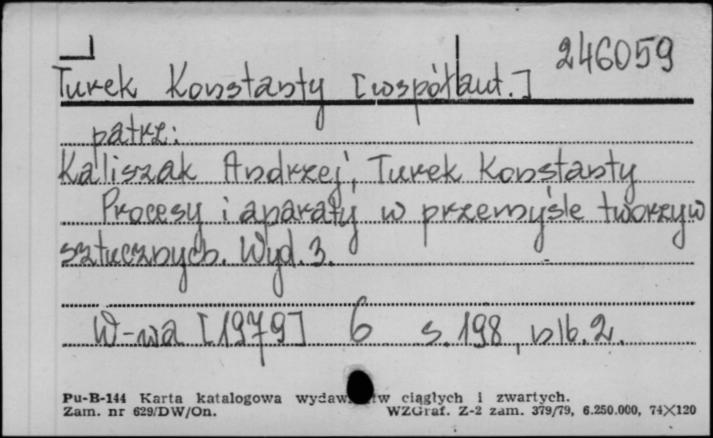 246059
Turek Konstanty [współaut.]
patrz:
Kaliszak Andrzej, Turek Konstanty
Procesy i aparaty w przemyśle tworzyw
sztucznych. Wyd. 3.
W-wa [1979] 6 s. 198, nlb. 2.
Pu-B-144 Karta katalogowa ciągłych i zwartych.
Zam. nr 629/DW/On. WZGraf. Z-2 zam. 379/79, 6.250.000, 74×120